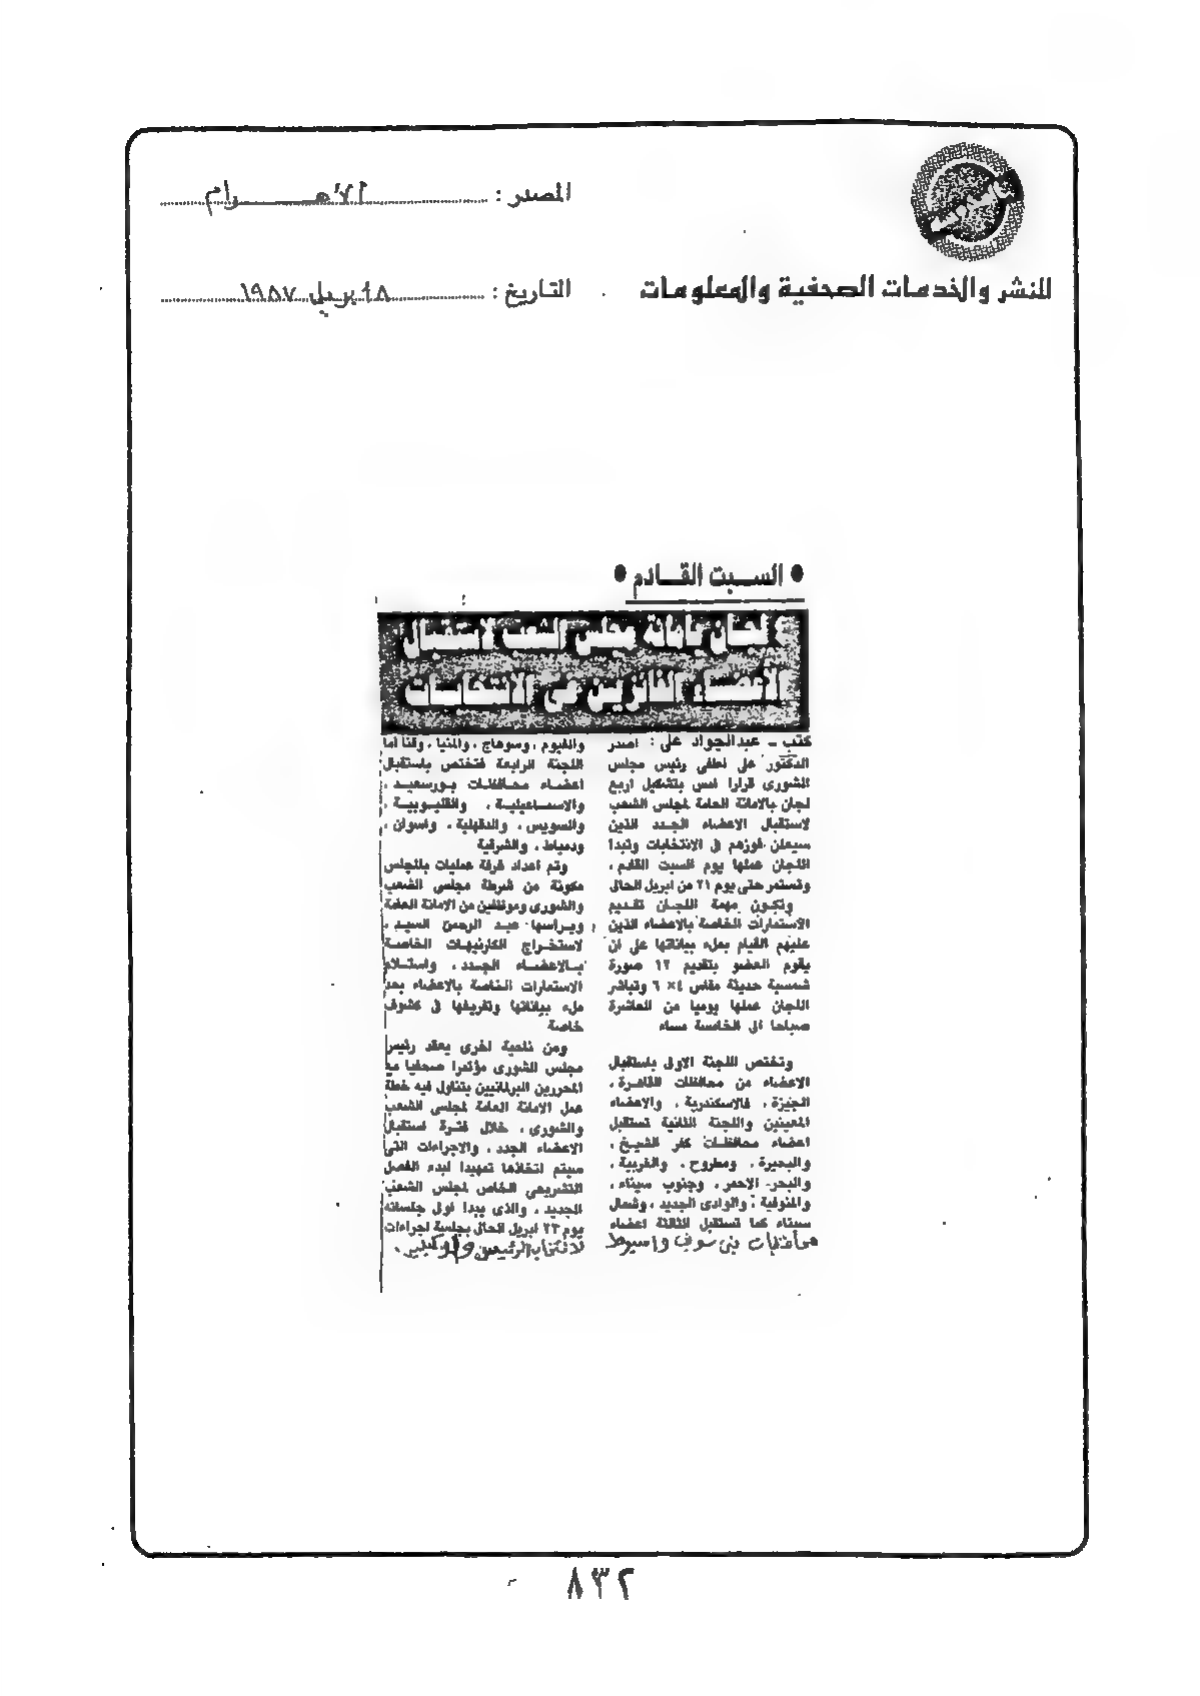 المصدر : الأهـــرام
للنشر والخدمات الصحفية والمعلومات
التاريخ : ٨ ابريل ١٩٨٧
● السبت القادم ●
٤ لجان بأمانة مجلس الشعب لاستقبال
الأعضاء الفائزين في الانتخابات
كتب ـ عبدالجواد على : اصدر
الدكتور على لطفى رئيس مجلس
الشورى قرارا امس بتشكيل اربع
لجان بالامانة العامة لمجلس الشعب
لاستقبال الاعضاء الجدد الذين
سيعلن فوزهم فى الانتخابات وتبدا
اللجان عملها يوم السبت القادم ،
وتستمر حتى يوم ٢١ من ابريل الحالى
وتكون مهمة اللجان تقديم
الاستمارات الخاصة بالاعضاء الذين
عليهم القيام بملء بياناتها على ان
يقوم العضو بتقديم ١٢ صورة
شمسية حديثة مقاس ٤ × ٦ وتباشر
اللجان عملها يوميا من العاشرة
صباحا الى الخامسة مساء
وتختص اللجنة الاولى باستقبال
الاعضاء من محافظات القاهرة ،
الجيزة ، فالاسكندرية ، والاعضاء
المعينين واللجنة الثانية تستقبل
اعضاء محافظات كفر الشيخ ،
والبحيرة ، ومطروح ، والغربية ،
والبحر الاحمر ، وجنوب سيناء ،
والمنوفية ، والوادى الجديد ، وشمال
سيناء كما تستقبل الثالثة اعضاء
محافظات بنى سويف واسيوط
والفيوم ، وسوهاج ، والمنيا ، وقنا اما
اللجنة الرابعة فتختص باستقبال
اعضاء محافظات بورسعيد ،
والاسماعيلية ، والقليوبية ،
والسويس ، والدقهلية ، واسوان ،
ودمياط ، والشرقية
وتم اعداد غرفة عمليات بالمجلس
مكونة من شرطة مجلسى الشعب
والشورى وموظفين من الامانة العامة
ويراسها عبد الرحمن السيد ،
لاستخراج الكارنيهات الخاصة
بالاعضاء الجدد ، واستلام
الاستمارات الخاصة بالاعضاء بعد
ملء بياناتها وتفريغها فى كشوف
خاصة
ومن ناحية اخرى يعقد رئيس
مجلس الشورى مؤتمرا صحفيا مع
المحررين البرلمانيين يتناول فيه خطة
عمل الامانة العامة لمجلسى الشعب
والشورى ، خلال فترة استقبال
الاعضاء الجدد ، والاجراءات التى
سيتم اتخاذها تمهيدا لبدء الفصل
التشريعى الخامس لمجلس الشعب
الجديد ، والذى يبدا اولى جلساته
يوم ٢٣ ابريل الحالى بجلسة اجراءات
لانتخاب الرئيس والوكيلين .
٨٣٢